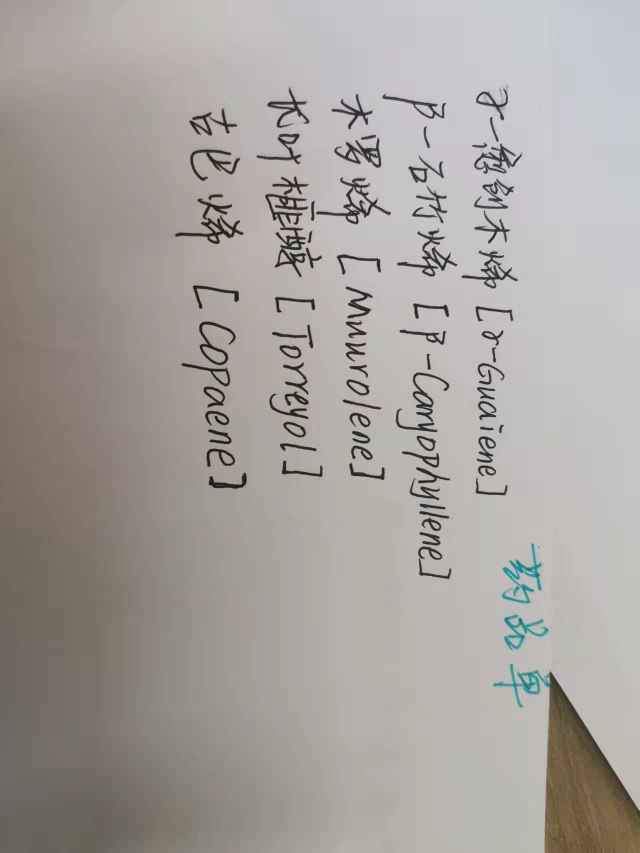 药品单
γ-愈创木烯 [γ-Guaiene]
β-石竹烯 [β-Caryophyllene]
木罗烯 [Muurolene]
长叶榧醇 [Torreyol]
古巴烯 [Copaene]